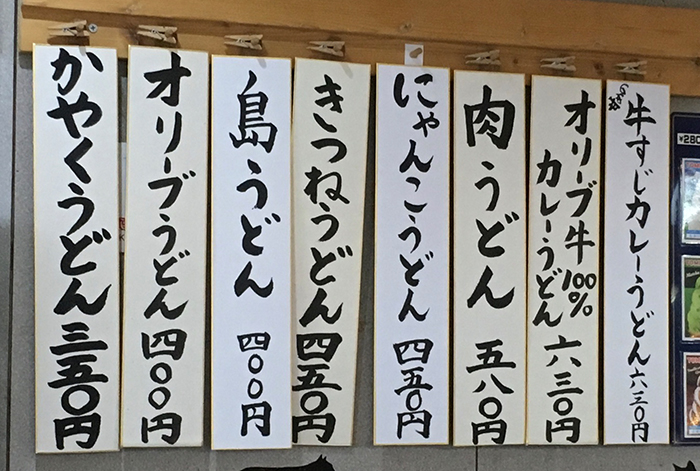 牛すじカレーうどん六三〇円
オリーブ牛100%
カレーうどん 六三〇円
肉うどん 五八〇円
にゃんこうどん 四五〇円
きつねうどん四五〇円
島うどん 四〇〇円
オリーブうどん 四〇〇円
かやくうどん三五〇円
¥280